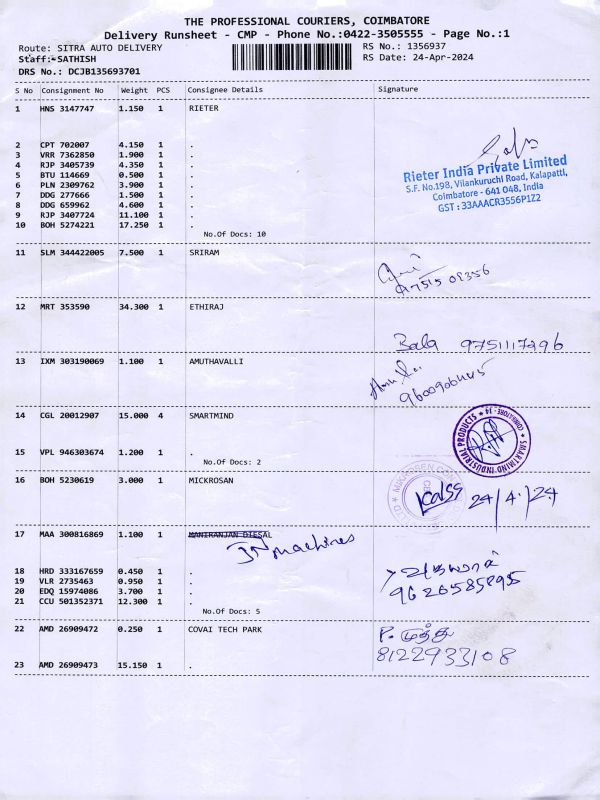 THE PROFESSIONAL COURIERS, COIMBATORE
Delivery Runsheet - CMP - Phone No.:0422-3505555 - Page No.:1
Route: SITRA AUTO DELIVERY RS No.: 1356937
Staff:-SATHISH RS Date: 24-Apr-2024
DRS No.: DCJB135693701
S No Consignment No Weight PCS Consignee Details Signature
1 HNS 3147747 1.150 1 RIETER
2 CPT 702007 4.150 1 .
3 VRR 7362850 1.900 1 .
4 RJP 3405739 4.350 1 .
5 BTU 114669 0.500 1 .
6 PLN 2309762 3.900 1 .
7 DDG 277666 1.500 1 .
8 DDG 659962 4.600 1 .
9 RJP 3407724 11.100 1 .
10 BOH 5274221 17.250 1 .
No.Of Docs: 10
Rieter India Private Limited
S.F. No.198, Vilankuruchi Road, Kalapatti,
Coimbatore - 641 048, India
GST : 33AAACR3556P1Z2
11 SLM 344422005 7.500 1 SRIRAM
12 MRT 353590 34.300 1 ETHIRAJ
Bala 9751117496
13 IXM 303190069 1.100 1 AMUTHAVALLI
14 CGL 20012907 15.000 4 SMARTMIND
SMARTMIND INDUSTRIAL PRODUCTS ★ COIMBATORE - 14 ★
15 VPL 946303674 1.200 1 .
No.Of Docs: 2
16 BOH 5230619 3.000 1 MICKROSAN
24/4/24
17 MAA 300816869 1.100 1 MANIRANJAN DIESAL
JN machines
18 HRD 333167659 0.450 1 .
19 VLR 2735463 0.950 1 .
20 EDQ 15974086 3.700 1 .
21 CCU 501352371 12.300 1 .
No.Of Docs: 5
22 AMD 26909472 0.250 1 COVAI TECH PARK
P. முத்து
8122933108
23 AMD 26909473 15.150 1 .